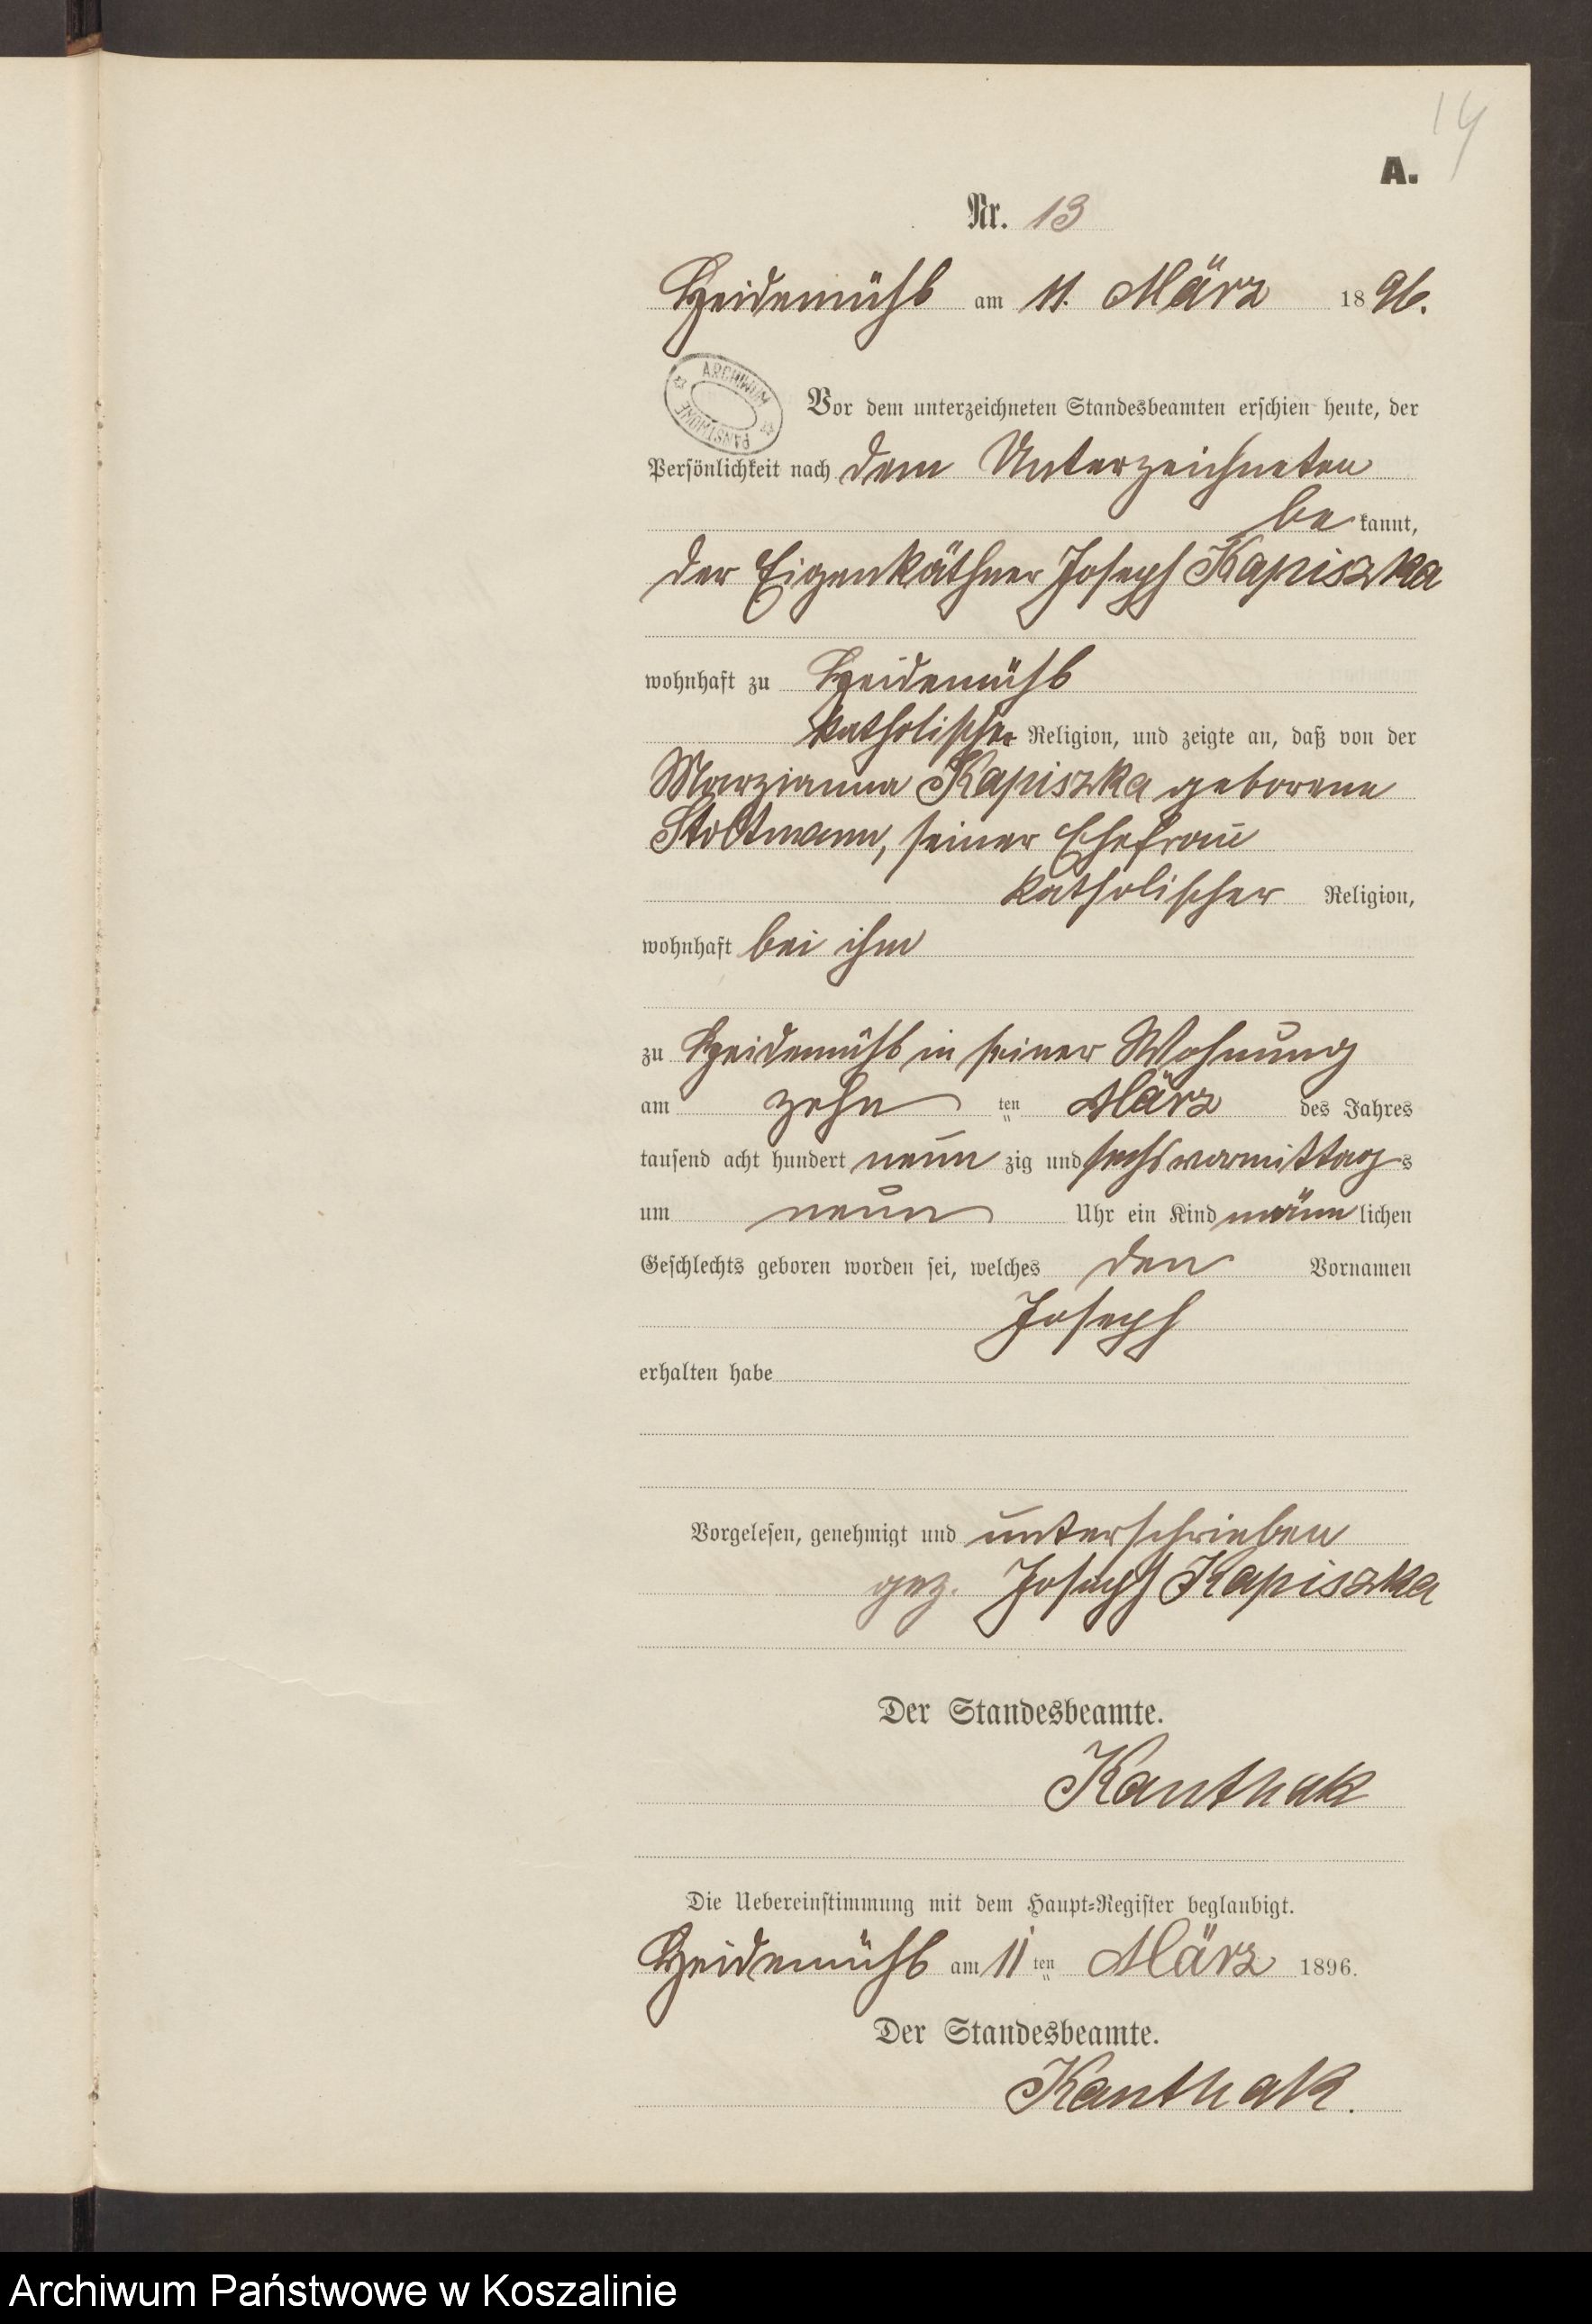 14
A.
Nr. 13
Heidemühl am 11. März 1896.
ARCHIWUM PAŃSTWOWE
Vor dem unterzeichneten Standesbeamten erschien heute, der
Persönlichkeit nach dem Unterzeichneten
be kannt,
der Eigenkäthner Joseph Kapiszka
wohnhaft zu Heidemühl
katholischer Religion, und zeigte an, daß von der
Marzianna Kapiszka geborene
Stoltmann, seiner Ehefrau
katholischer Religion,
wohnhaft bei ihm
zu Heidemühl in seiner Wohnung
am zehn ten März des Jahres
tausend acht hundert neun zig und sechs vormittags
um neun Uhr ein Kind männlichen
Geschlechts geboren worden sei, welches den Vornamen
Joseph
erhalten habe
Vorgelesen, genehmigt und unterschrieben
gez. Joseph Kapiszka
Der Standesbeamte.
Kanthak
Die Uebereinstimmung mit dem Haupt-Register beglaubigt.
Heidemühl am 11 ten März 1896.
Der Standesbeamte.
Kanthak.
Archiwum Państwowe w Koszalinie